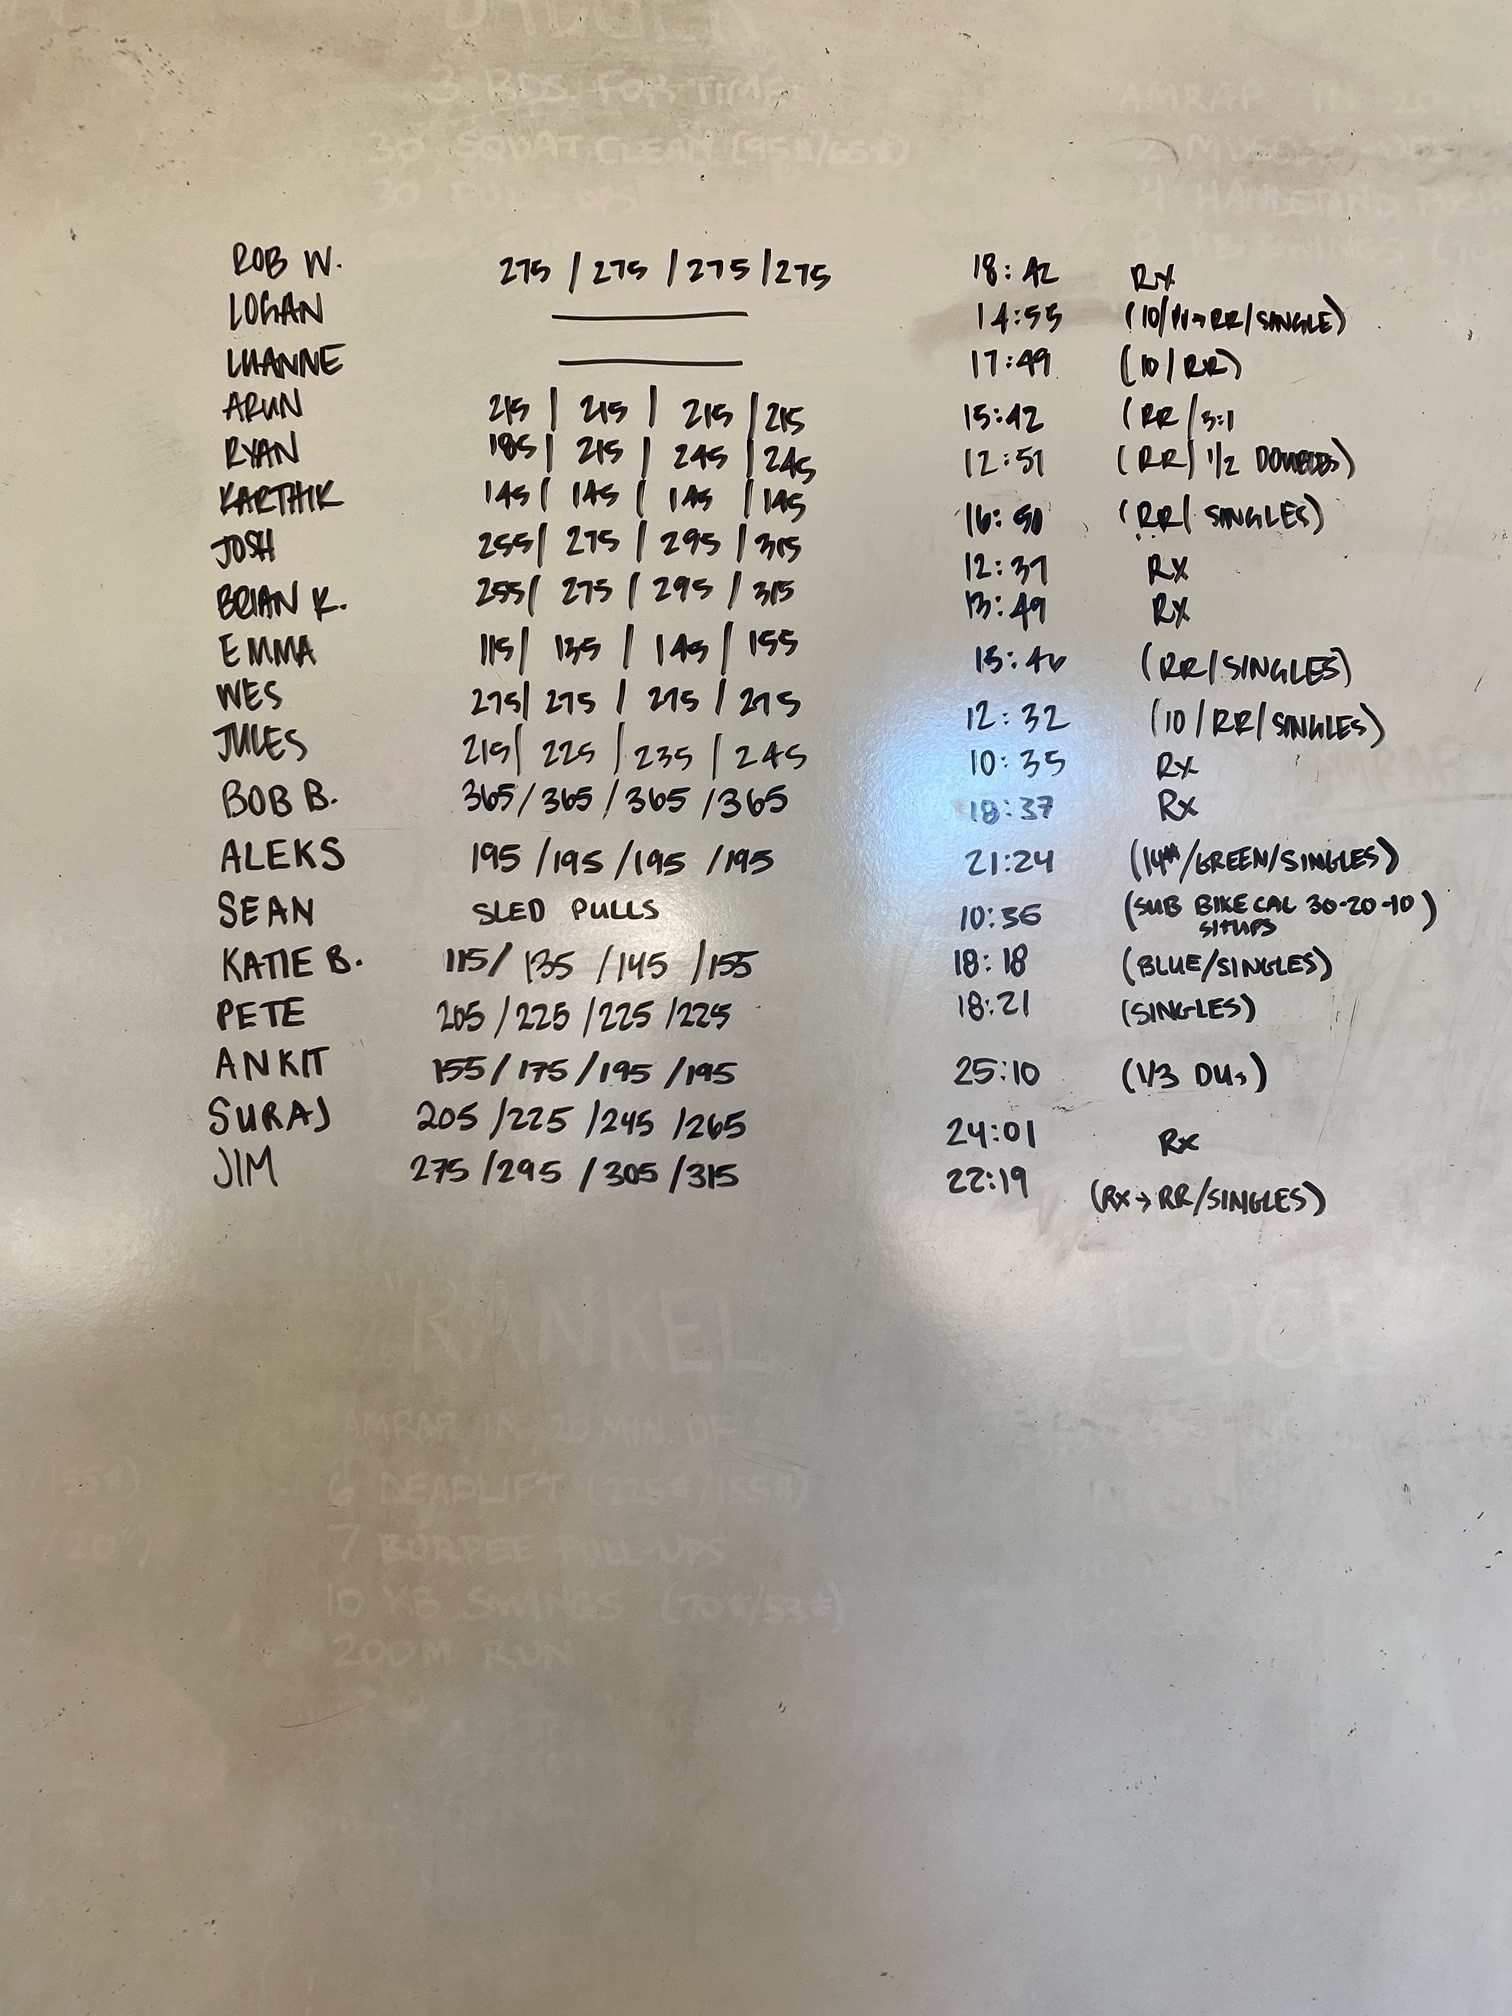 3 RDS. FOR TIME:
30 SQUAT CLEAN (95#/65#)
30 PULL-UPS
AMRAP IN 20
ROB W. 275 / 275 / 275 / 275 18:42 Rx
LOGAN 14:55 (10/ RR/SINGLE)
LUANNE 17:49 (10/RR)
ARUN 215 | 215 | 215 | 215 15:42 (RR/3:1
RYAN 185 | 215 | 245 | 245 12:51 (RR/ 1/2 DOUBLES)
KARTHIK 145 | 145 | 145 | 145 16:50 (RR/ SINGLES)
JOSH 255 | 275 / 295 / 315 12:37 Rx
BRIAN K. 255 / 275 / 295 / 315 13:49 Rx
EMMA 115 / 135 / 145 / 155 15:46 (RR/SINGLES)
WES 275 | 275 / 275 / 275 12:32 (10/RR/SINGLES)
JULES 215 | 225 | 235 | 245 10:35 Rx
BOB B. 365 / 365 / 365 / 365 18:37 Rx
ALEKS 195 / 195 / 195 / 195 21:24 (14#/GREEN/SINGLES)
SEAN SLED PULLS 10:36 (SUB BIKE CAL 30-20-10)
SITUPS
KATIE B. 115 / 135 / 145 / 155 18:18 (BLUE/SINGLES)
PETE 205 / 225 / 225 / 225 18:21 (SINGLES)
ANKIT 155 / 175 / 195 / 195 25:10 (1/3 DUs)
SURAJ 205 / 225 / 245 / 265 24:01 Rx
JIM 275 / 295 / 305 / 315 22:19 (Rx → RR/SINGLES)
RANKEL
AMRAP IN 20 MIN. OF
6 DEADLIFT (225#/155#)
7 BURPEE PULL-UPS
10 KB SWINGS (70#/53#)
200M RUN